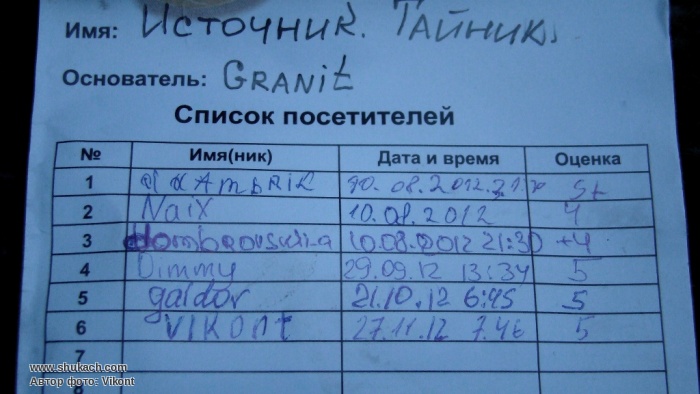 Имя: Источник. Тайник.
Основатель: GRANit
Список посетителей
№ Имя(ник) Дата и время Оценка
1 10.08.2012 5+
2 Naix 10.08.2012 4
3 10.08.2012 21:30 +4
4 Dimmy 29.09.12 13:34 5
5 galdor 21.10.12 6:45 5
6 VIKONt 27.11.12 7.46 5
7
8
www.shukach.com
Автор фото: Vikont